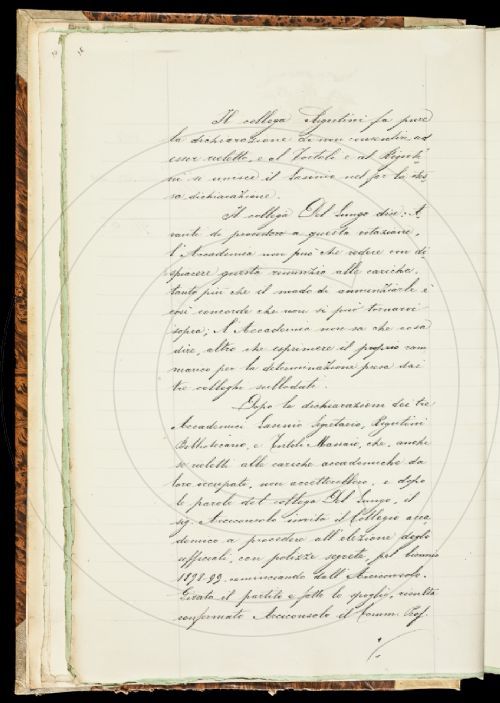 Il collega Rigutini fa pure
la dichiarazione di non consentire ad
esser rieletto, e al Tortoli e al Riguti-
ni si unisce il Casini nel far la stes-
sa dichiarazione.
Il collega Del Lungo dice: A-
vanti di procedere a questa votazione,
l'Accademia non può che vedere con di-
spiacere questa rinunzia alle cariche,
tanto più che il modo di annunziarle è
così concorde che non si può tornarvi
sopra; l'Accademia non sa che cosa
dire, altro che esprimere il proprio ram-
marico per la determinazione presa dai
tre colleghi sullodati.
Dopo le dichiarazioni dei tre
Accademici Segretario, Rigutini
Bibliotecario, e Tortoli Massaio, che, anche
se rieletti alle cariche accademiche da
loro occupate, non accetterebbero, e dopo
le parole del collega Del Lungo, il
sig. Arciconsolo invita il Collegio acca-
demico a procedere all'elezione degli
ufficiali, con polizze segrete, pel biennio
1898-99, cominciando dall'Arciconsolo.
Girato il partito e fatto lo spoglio, resulta
confermato Arciconsolo il Comm. Prof.
./.